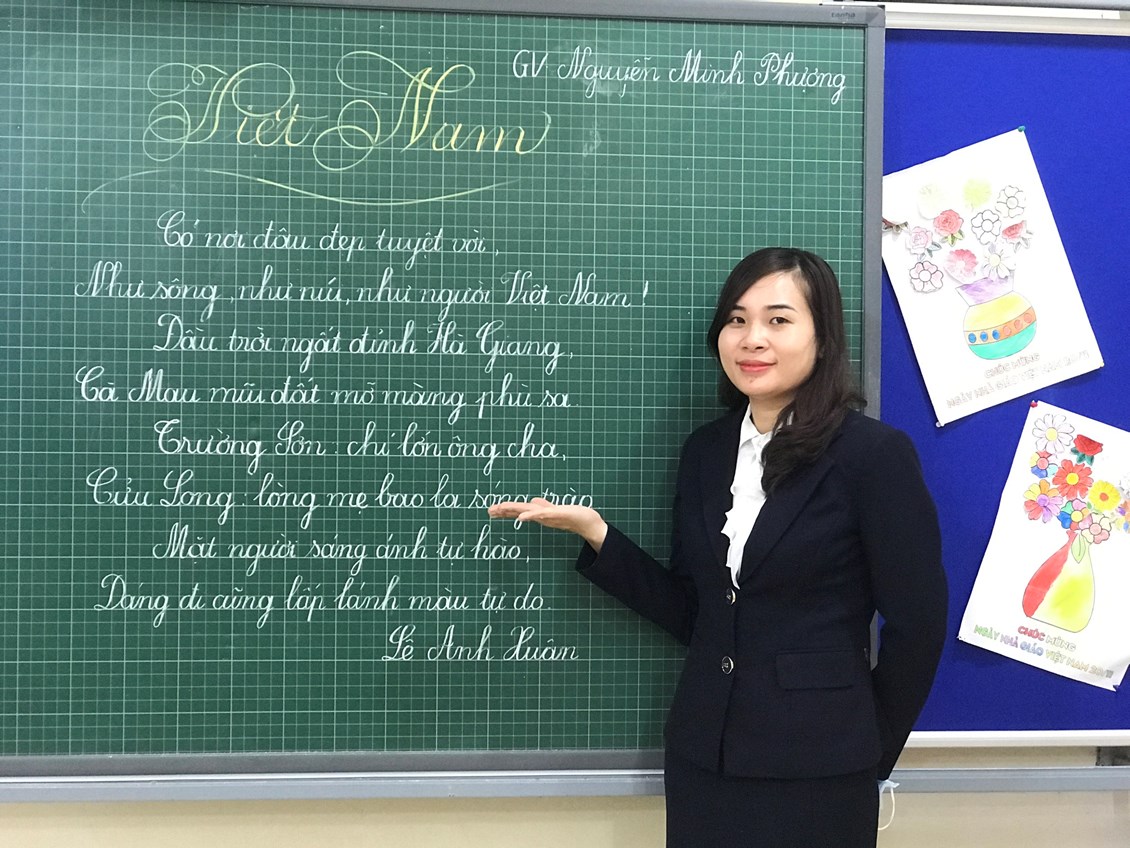 Việt Nam
GV Nguyễn Minh Phượng
Có nơi đâu đẹp tuyệt vời,
Như sông, như núi, như người Việt Nam!
Đầu trời ngất đỉnh Hà Giang,
Cà Mau mũi đất mỡ màng phù sa.
Trường Sơn: chí lớn ông cha,
Cửu Long: lòng mẹ bao la sóng trào
Mặt người sáng ánh tự hào,
Dáng đi cũng lấp lánh màu tự do.
Lê Anh Xuân
CHÚC MỪNG
NGÀY NHÀ GIÁO VIỆT NAM 20-11
CHÚC MỪNG
NGÀY NHÀ GIÁO VIỆT NAM 20/11